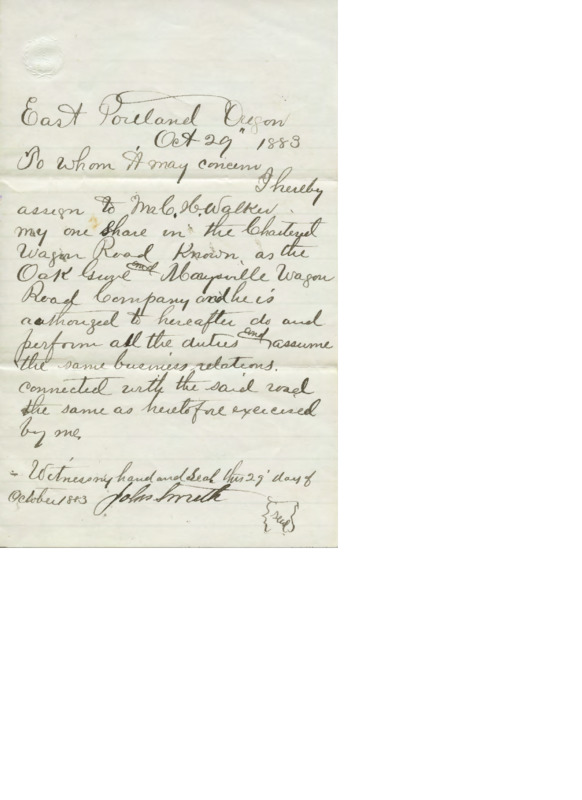 East Portland Oregon
Oct 29" 1883
To Whom it may concern
I hereby
assign to Mr C. H. Walker
my one Share in the Chartered
Wagon Road Known as the
Oak Grove and Marysville Wagon
Road Company and he is
authorized to hereafter do and
perform all the duties and assume
the same business relations.
connected with the said road
the same as heretofore exercised
by me.
Witness my hand and Seal this 29" day of
October 1883 John Smith
{Seal}